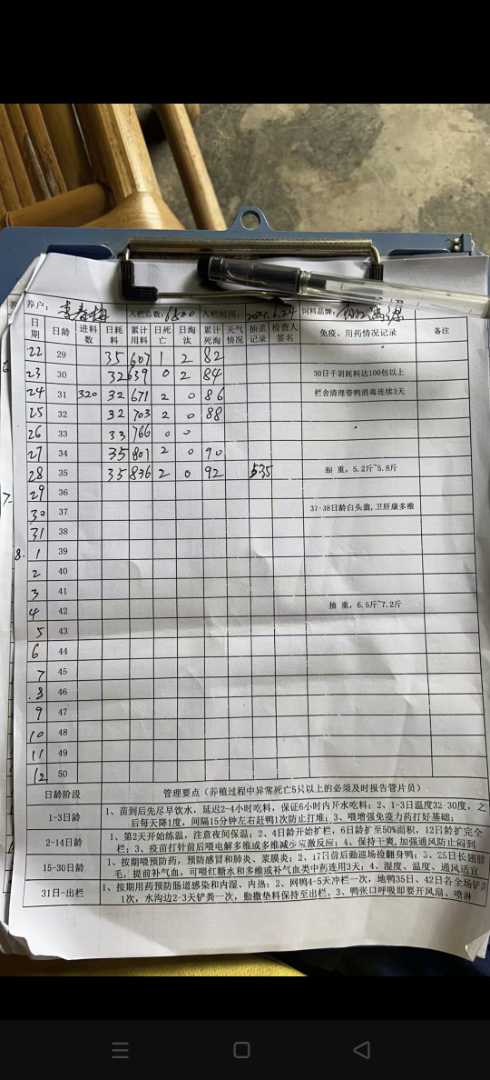 养户: 入栏总数: 6800 入栏时间: 饲料品牌:
日期 日龄 进料数 日耗料 累计用料 日死亡 日淘汰 累计死淘 天气情况 抽重记录 检查人签名 免疫、用药情况记录 备注
22 29 35 607 1 2 82
23 30 32 639 0 2 84 30日千羽耗料达100包以上
24 31 320 32 671 2 0 86 栏舍清理带鸭消毒连续3天
25 32 32 703 2 0 88
26 33 33 766 0 0
27 34 35 801 2 0 90
28 35 35 836 2 0 92 535 抽 重:5.2斤~5.8斤
29 36
30 37 37-38日龄白头翁,卫肝康多维
31 38
8. 1 39
2 40
3 41
4 42 抽 重:6.5斤~7.2斤
5 43
6 44
7 45
8 46
9 47
10 48
11 49
12 50
日龄阶段 管理要点(养殖过程中异常死亡5只以上的必须及时报告管片员)
1-3日龄 1、苗到后先尽早饮水,延迟2-4小时吃料,保证6小时内开水吃料;2、1-3日温度32-30度,之
后每天降1度,间隔15分钟左右赶鸭1次防止打堆;3、喂增强免疫力药打好基础;
2-14日龄 1、第2天开始练温,注意夜间保温;2、4日龄开始扩栏,6日龄扩至50%面积,12日龄扩完全
栏;3、疫苗打针前后喂电解多维或多维减少应激反应;4、保持干爽,加强通风防止闷到
15-30日龄 1、按期喂预防药,预防感冒和肺炎、浆膜炎;2、17日前后勤巡场捡翻身鸭;3、25日长翅膀
毛,提前补气血,可喂红糖水和多维或补气血类中药连用3天;4、湿度、温度、通风适宜
31日-出栏 1、按期用药预防肠道感染和内湿、内热;2、网鸭4-5天冲栏一次,地鸭35日、42日各全场铲粪
1次,水沟边2-3天铲粪一次,勤撒垫料保持至出栏。3、鸭张口呼吸即要开风扇、喷淋